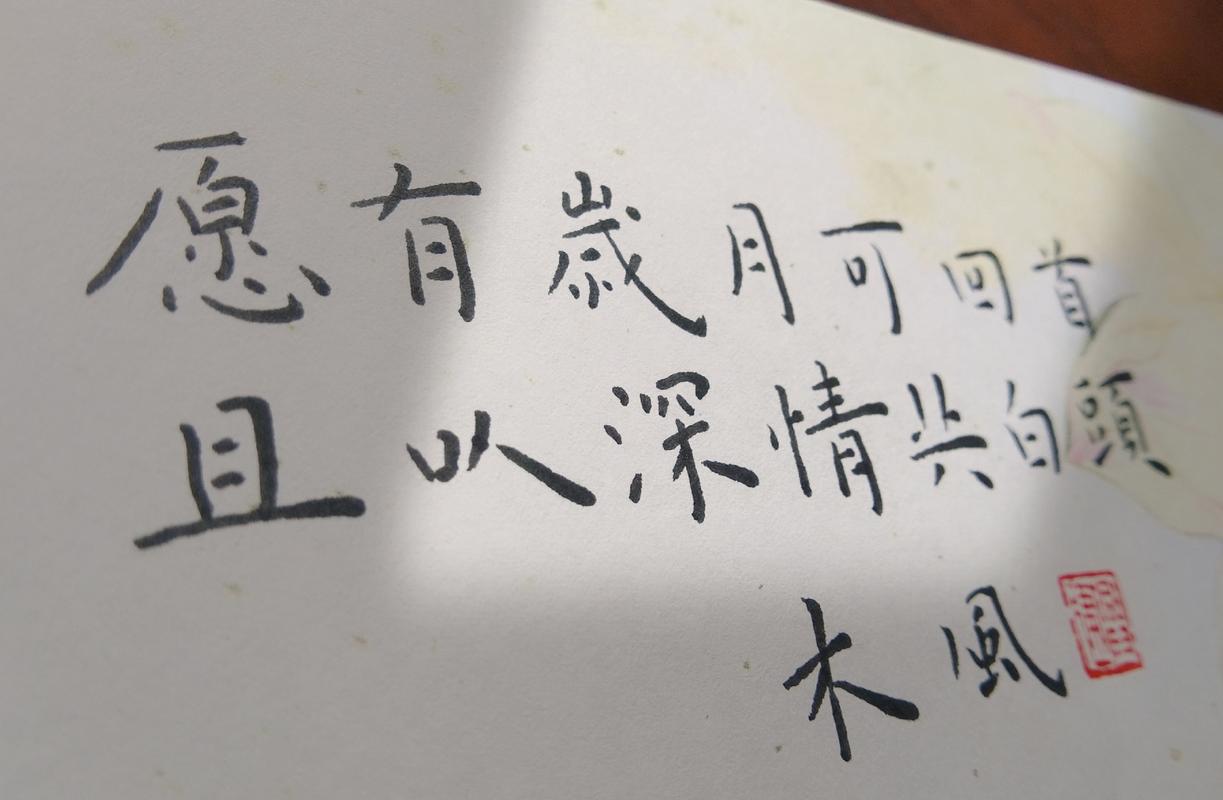 愿有歲月可回首
且以深情共白頭
木風